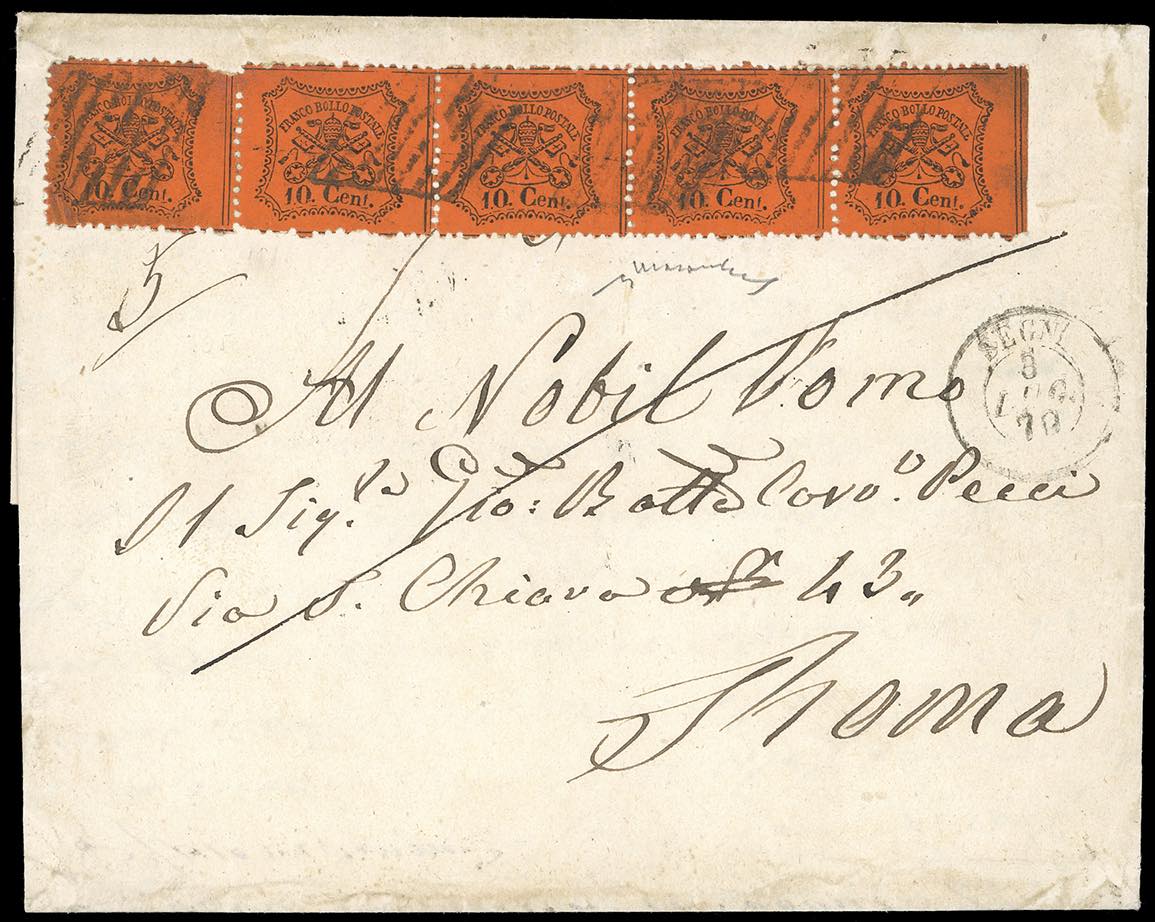 FRANCO BOLLO POSTALE FRANCO BOLLO POSTALE FRANCO BOLLO POSTALE FRANCO BOLLO POSTALE FRANCO BOLLO POSTALE
10. Cent. 10. Cent. 10. Cent. 10. Cent. 10. Cent.
5
SEGNI
8
LUG.
70
Al Nobil Uomo
Il Sig.r Gio: Batta Pecci
Via S. Chiara 43
Roma